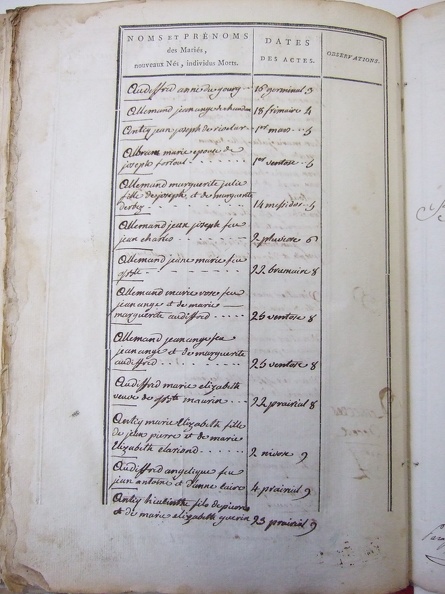 NOMS ET PRÉNOMS
des Mariés,
nouveaux Nés, individus Morts.
DATES
DES ACTES.
OBSERVATIONS.
Audiffred anne du 16 germinal 3
Allemand jean ange de 18 frimaire 4
Antiq jean joseph de 1er mars 5
Albran marie epouse de
joseph fortoul 1er ventose 5
Allemand marguerite julie
fille de joseph et de marguerite
derbez 14 messidor 5
Allemand jean joseph feu
jean charles 2 pluviose 6
Allemand jeane marie feu
22 brumaire 8
Allemand marie rose feu
jean ange et de marie
marguerite audiffred 25 ventose 8
Allemand jean ange feu
jean ange et de marguerite
audiffred 25 ventose 8
Audiffred marie elizabeth
veuve de maurin 22 prairial 8
Antiq marie Elizabeth fille
de jean pierre et de marie
Elizabeth clariond 2 nivose 9
Audiffred angelique feu
jean antoine et d'anne caire 4 prairial 9
Antiq hiacinthe fils de pierre
et de marie elizabeth guerin 23 prairial 9